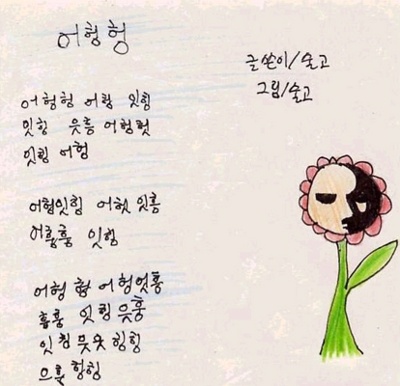 어헝헝
글쓴이/술고
그림/술고
어헝헝 어헝 잇힝
잇힝 읏흥 어헝헛
잇힝 어헝
어헝잇힝 어헛 잇흥
어흥흥 잇힝
어헝 어헝엇흥
흥흥 잇힝 읏흥
잇힝 읏 힝힝
으흑 힝힝